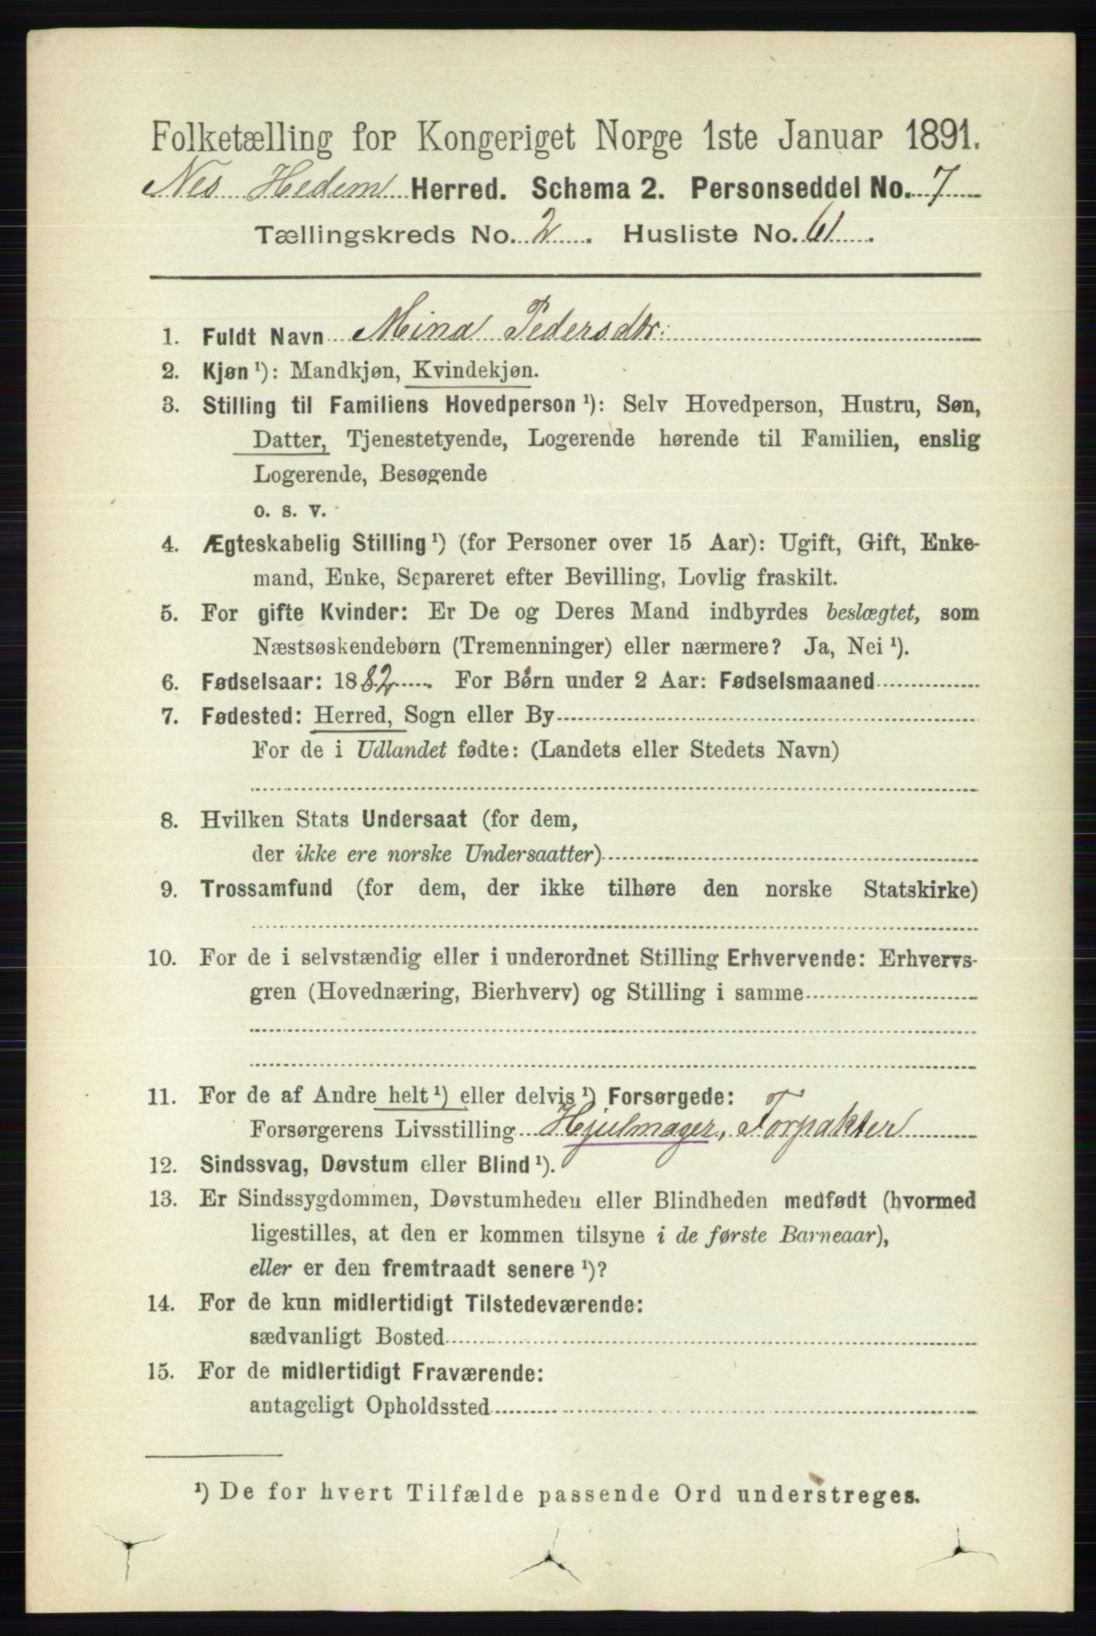 Folketælling for Kongeriget Norge 1ste Januar 1891.
Nes Hedem Herred. Schema 2. Personseddel No. 7
Tællingskreds No. 2. Husliste No. 61.
1. Fuldt Navn Mina Pedersdtr.
2. Kjøn ¹): Mandkjøn, Kvindekjøn.
3. Stilling til Familiens Hovedperson ¹): Selv Hovedperson, Hustru, Søn,
Datter, Tjenestetyende, Logerende hørende til Familien, enslig
Logerende, Besøgende
o. s. v.
4. Ægteskabelig Stilling ¹) (for Personer over 15 Aar): Ugift, Gift, Enke-
mand, Enke, Separeret efter Bevilling, Lovlig fraskilt.
5. For gifte Kvinder: Er De og Deres Mand indbyrdes beslægtet, som
Næstsøskendebørn (Tremenninger) eller nærmere? Ja, Nei ¹).
6. Fødselsaar: 1882. For Børn under 2 Aar: Fødselsmaaned
7. Fødested: Herred, Sogn eller By
For de i Udlandet fødte: (Landets eller Stedets Navn)
8. Hvilken Stats Undersaat (for dem,
der ikke ere norske Undersaatter)
9. Trossamfund (for dem, der ikke tilhøre den norske Statskirke)
10. For de i selvstændig eller i underordnet Stilling Erhvervende: Erhvervs-
gren (Hovednæring, Bierhverv) og Stilling i samme
11. For de af Andre helt ¹) eller delvis ¹) Forsørgede:
Forsørgerens Livsstilling Hjulmager, Forpakter
12. Sindssvag, Døvstum eller Blind ¹).
13. Er Sindssygdommen, Døvstumheden eller Blindheden medfødt (hvormed
ligestilles, at den er kommen tilsyne i de første Barneaar),
eller er den fremtraadt senere ¹)?
14. For de kun midlertidigt Tilstedeværende:
sædvanligt Bosted
15. For de midlertidigt Fraværende:
antageligt Opholdssted
¹) De for hvert Tilfælde passende Ord understreges.